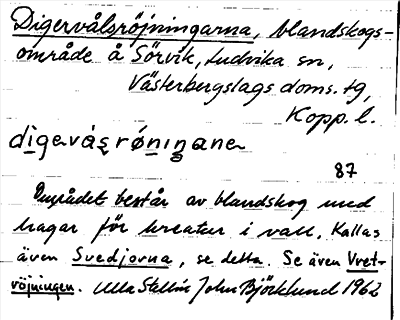 Digervålsröjningarna, blandskogs-
område å Sörvik, Ludvika sn,
Västerbergslags doms. tg,
Kopp. l.
digevásrøningane
87
Området består av blandskog med
hagar för kreatur i vall. Kallas
även Svedjorna, se detta. Se även Vret-
röjningen. Ulla Stellin John Björklund 1962